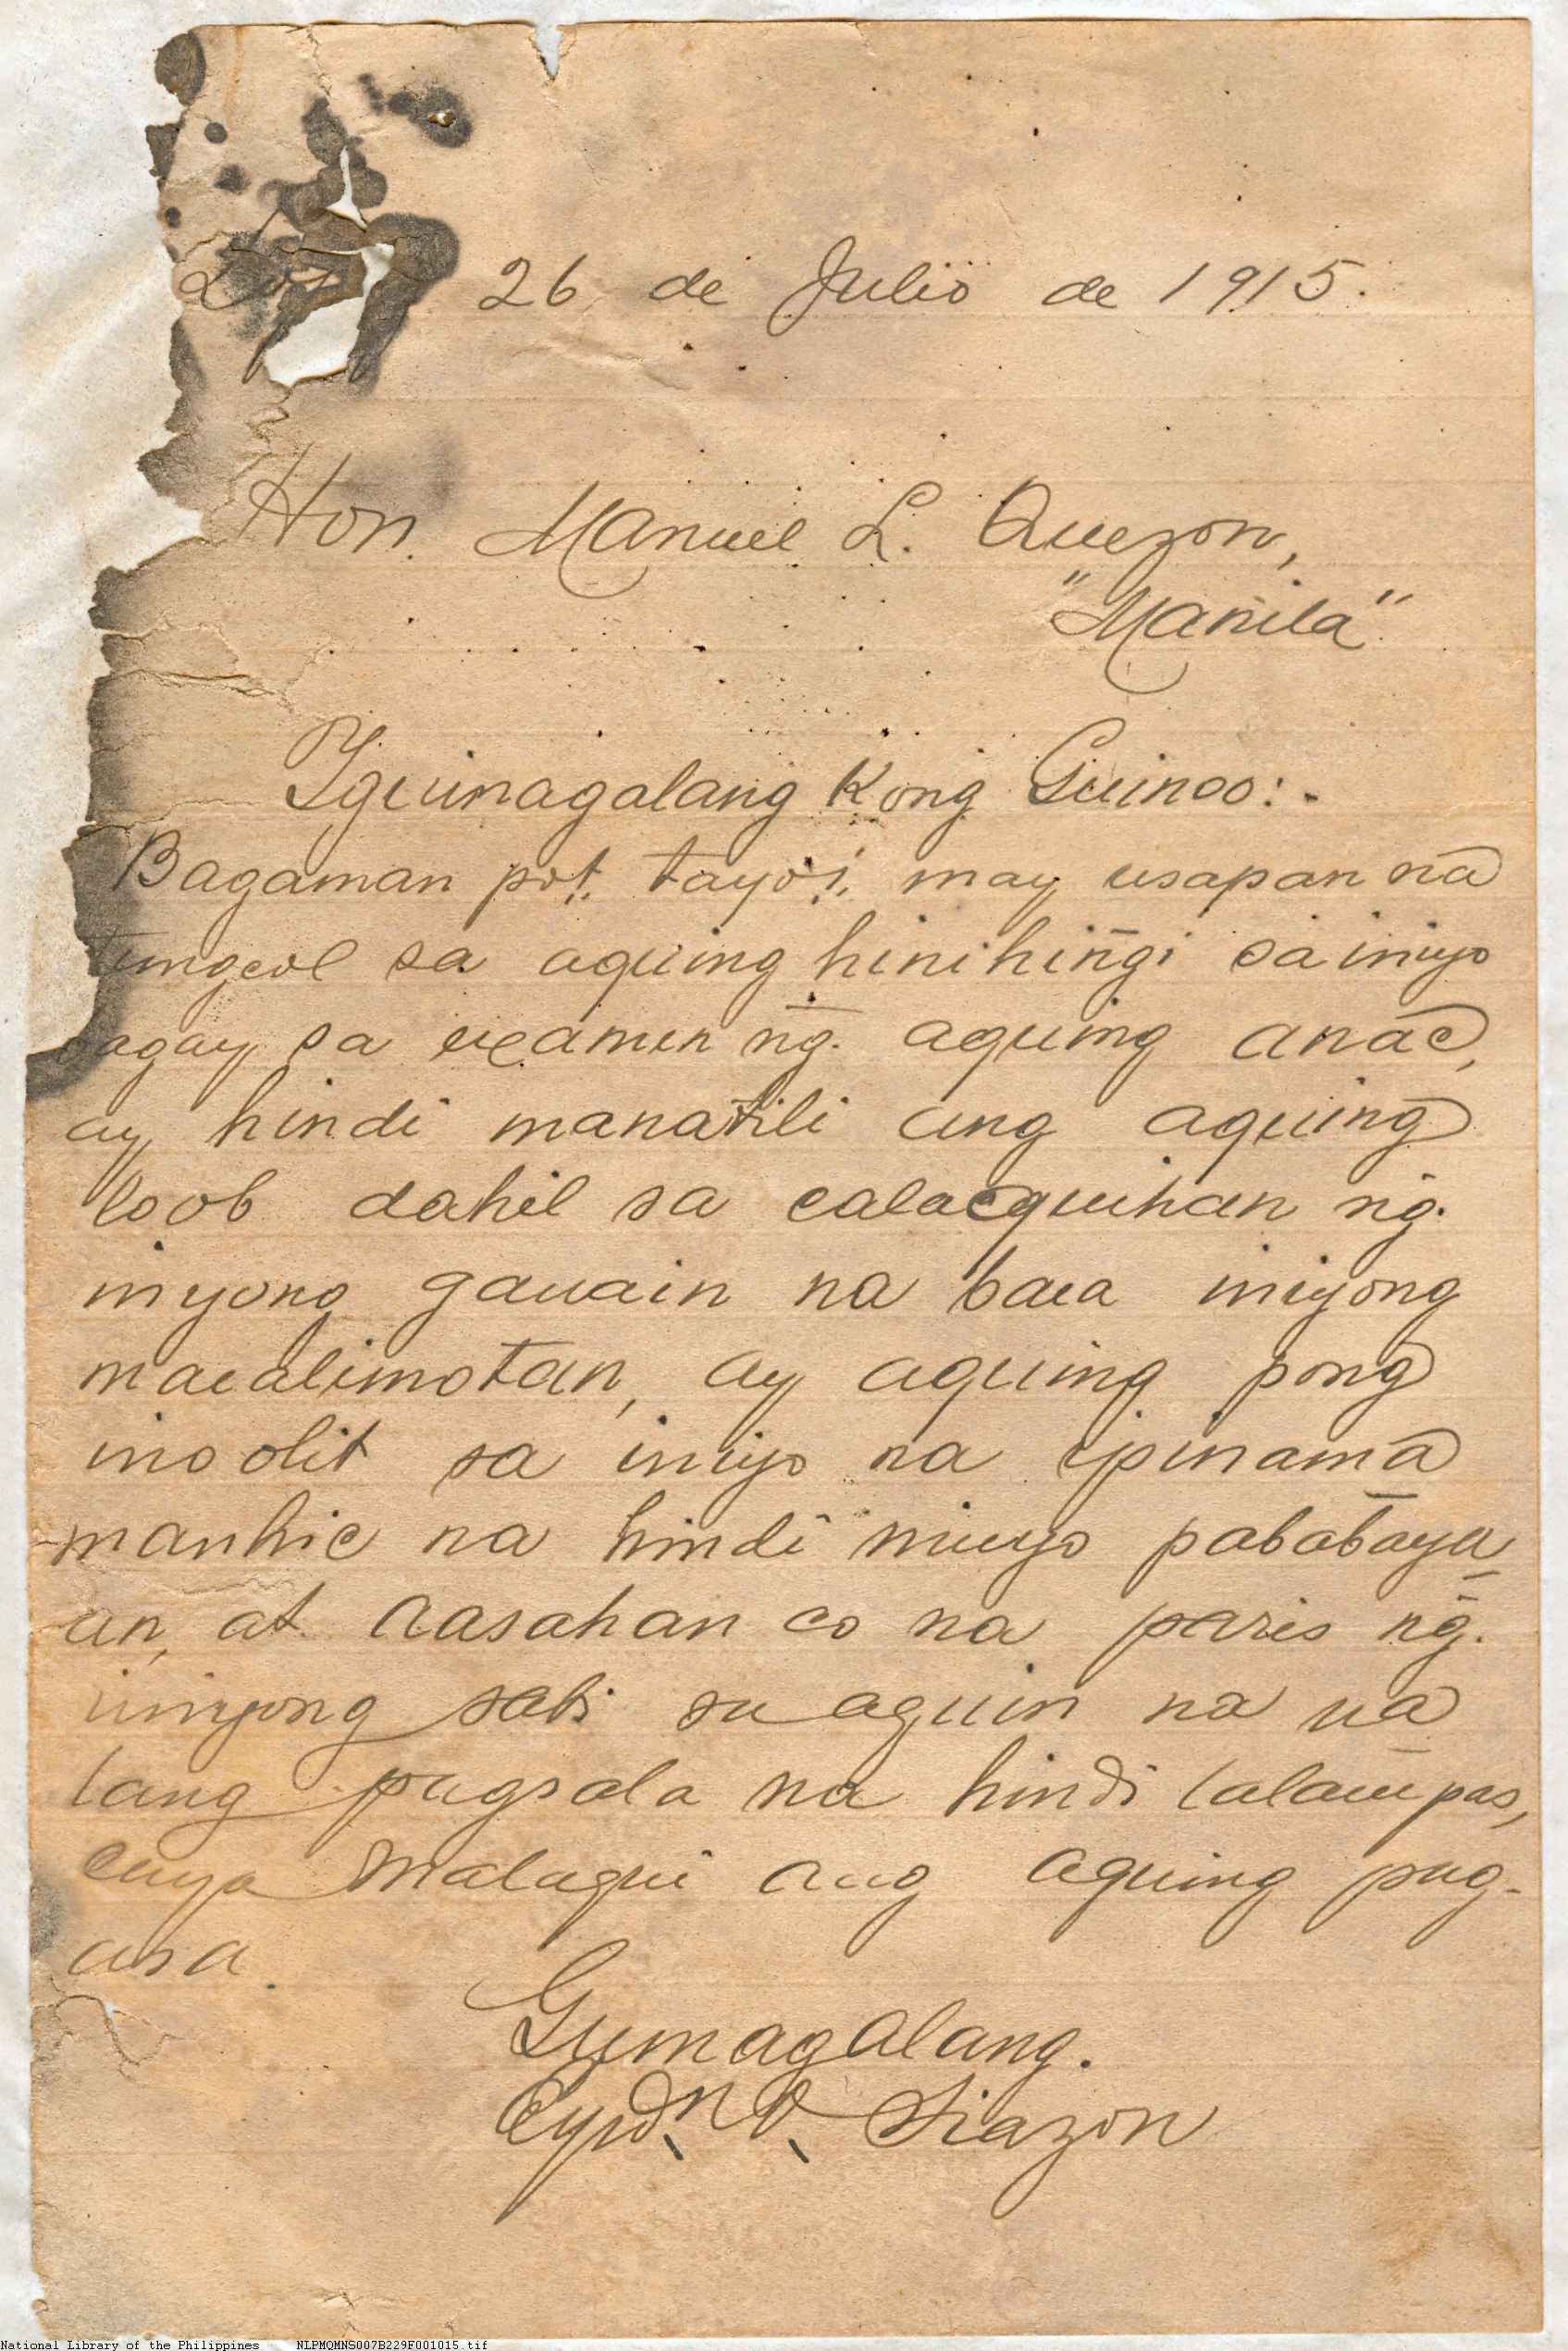 26 de Julio de 1915.
Hon. Manuel L. Quezon,
"Manila".
Iguinagalang Kong Guinoo:-
Bagaman pot, tayo'i, may usapan na
tungcol sa aquing hinihiñgi sa iniyo
bagay sa examen ñg. aquing anac,
ay hindi manatili ang aquing
loob dahil sa calacquihan ñg.
inyong gauain na baca iniyong
macalimotan, ay aquing pong
ino olit sa iniyo na ipinama
manhic na hindi niniyo pababaya
an, at aasahan co na paris ñg.
iniyong sabi sa aquin na ua
lang pagsala na hindi lalampas,
cuya malaqui ang aquing pag-
asa.
Gumagalang.
Siazon
National Library of the Philippines NLPMQMNS007B229F001015.tif